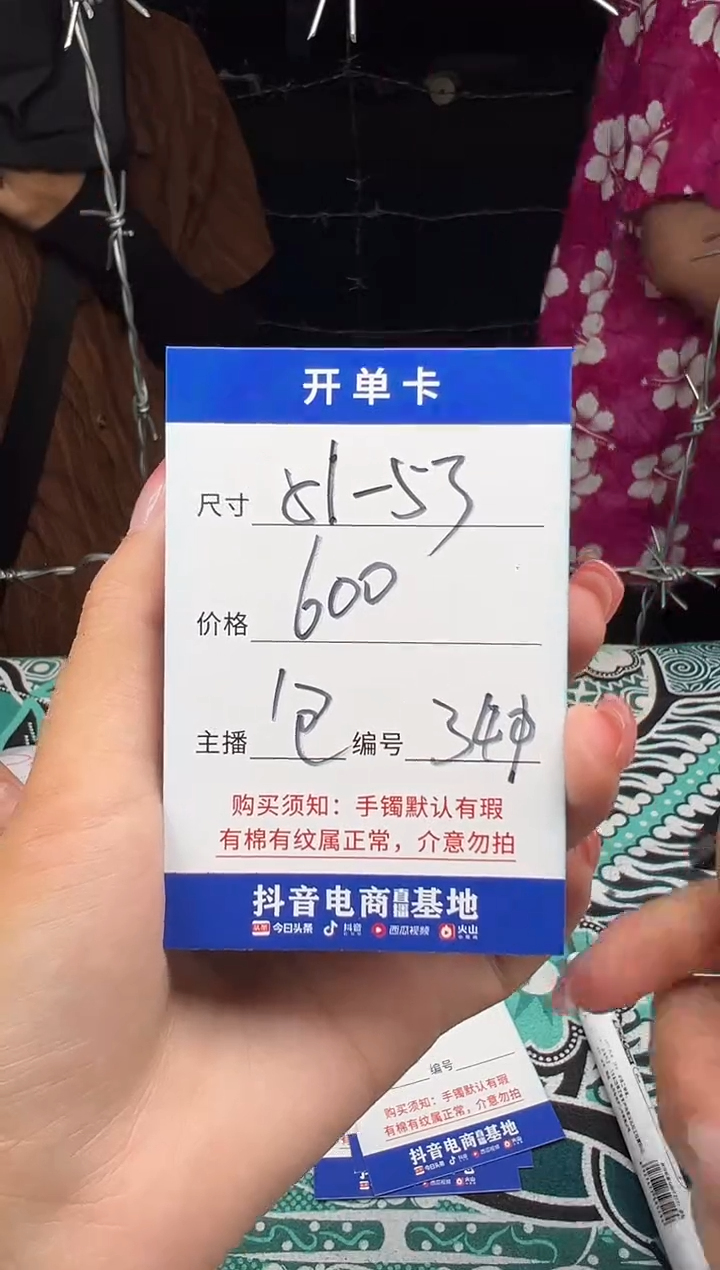 开单卡
尺寸 51-53
价格 600
主播 包 编号
购买须知：手镯默认有瑕
有棉有纹属正常，介意勿拍
抖音电商直播基地
头条 今日头条 抖音 西瓜视频 火山
编号
购买须知：手镯默认有瑕
有棉有纹属正常，介意勿拍
抖音电商直播基地
今日头条 抖音 西瓜视频 火山